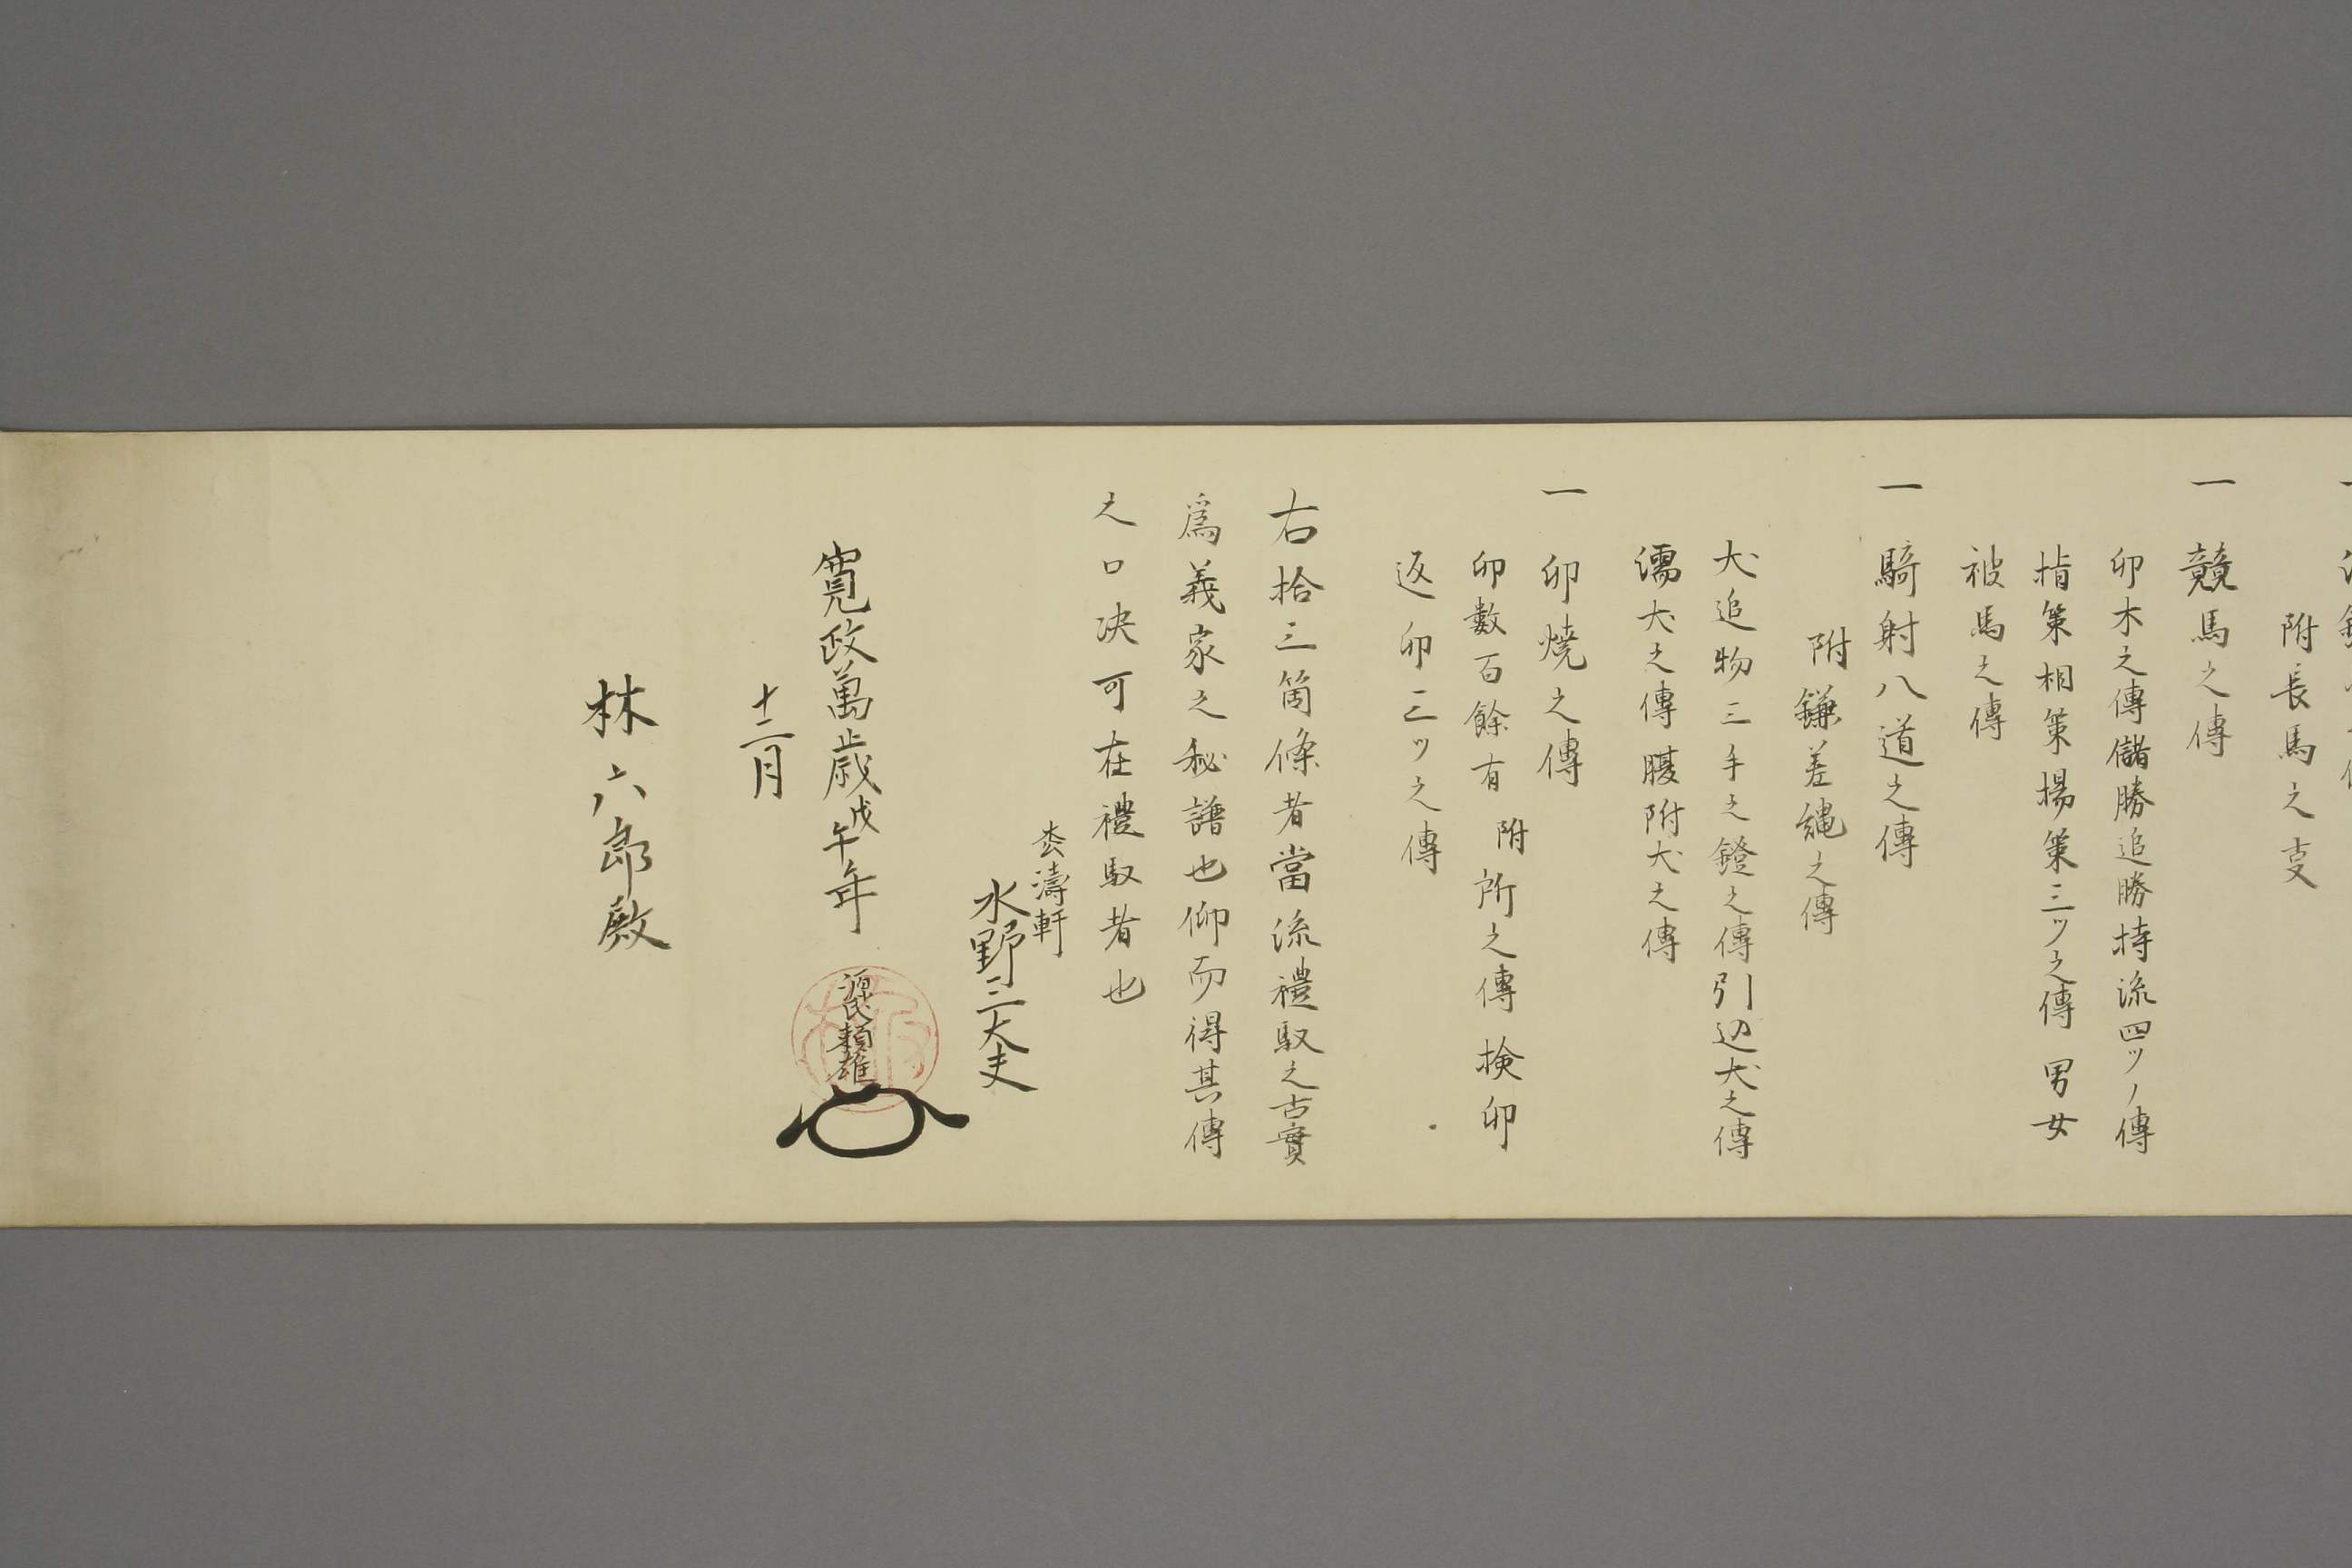 附長馬之支
一 競馬之傳
卯木之傳儲勝追勝持流四ツノ傳
指策相策揚策三ツ之傳 男女
被馬之傳
一 騎射八道之傳
附鎌差縄之傳
犬追物三手之鐙之傳引迯犬之傳
濡犬之傳腰附犬之傳
一 卯燒之傳
卯數百餘有 附所之傳 検卯
返卯三ツ之傳
右拾三箇條者當流禮馭之古實
爲義家之秘譜也仰而得其傳
之口决可在禮馭者也
松濤軒
水野三太夫
寛政萬歳戊午年
源氏頼雄
十二月
林六郎殿